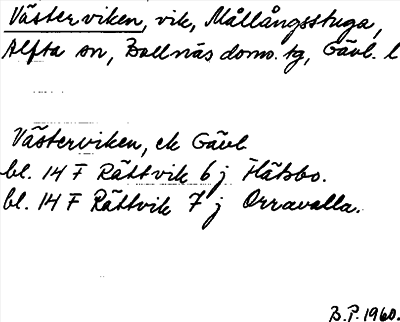 Västerviken, vik, Mållångsstuga,
Alfta sn, Bollnäs doms. tg, Gävl. l
Västerviken, ek Gävl
bl. 14 F Rättvik 6 j Flätsbo.
bl. 14 F Rättvik 7 j Orravalla.
B.P. 1960.